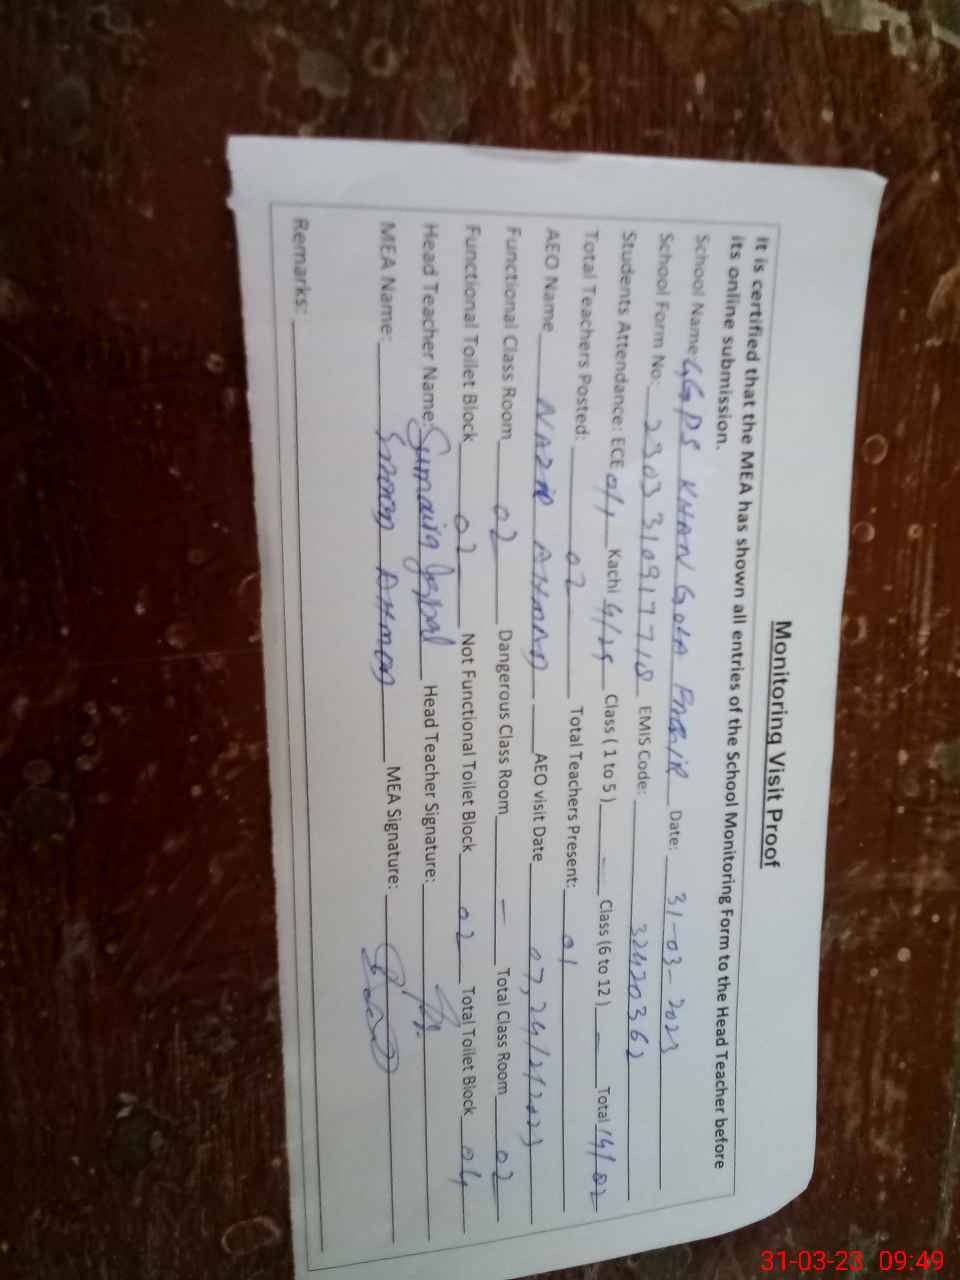 Monitoring Visit Proof
It is certified that the MEA has shown all entries of the School Monitoring Form to the Head Teacher before
its online submission.
School Name GGPS KHAN GOLA Date: 31-03-2023
School Form No: 23033109177 18 EMIS Code: 32420362
Students Attendance: ECE Kachi Class ( 1 to 5 ) - Class (6 to 12 ) - Total
Total Teachers Posted: 02 Total Teachers Present: 01
AEO Name NAZIR AHMAD AEO visit Date 07,24/2/2023
Functional Class Room 02 Dangerous Class Room - Total Class Room 02
Functional Toilet Block 02 Not Functional Toilet Block 02 Total Toilet Block 04
Head Teacher Name: Sumaira Head Teacher Signature:
MEA Name: AHMAD MEA Signature:
Remarks:
31-03-23 09:49